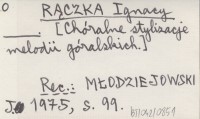 0 RĄCZKA Ignacy
___. [Chóralne stylizacje
melodii góralskich.]
Rec.: MŁODZIEJOWSKI
J. 1975, s. 99.